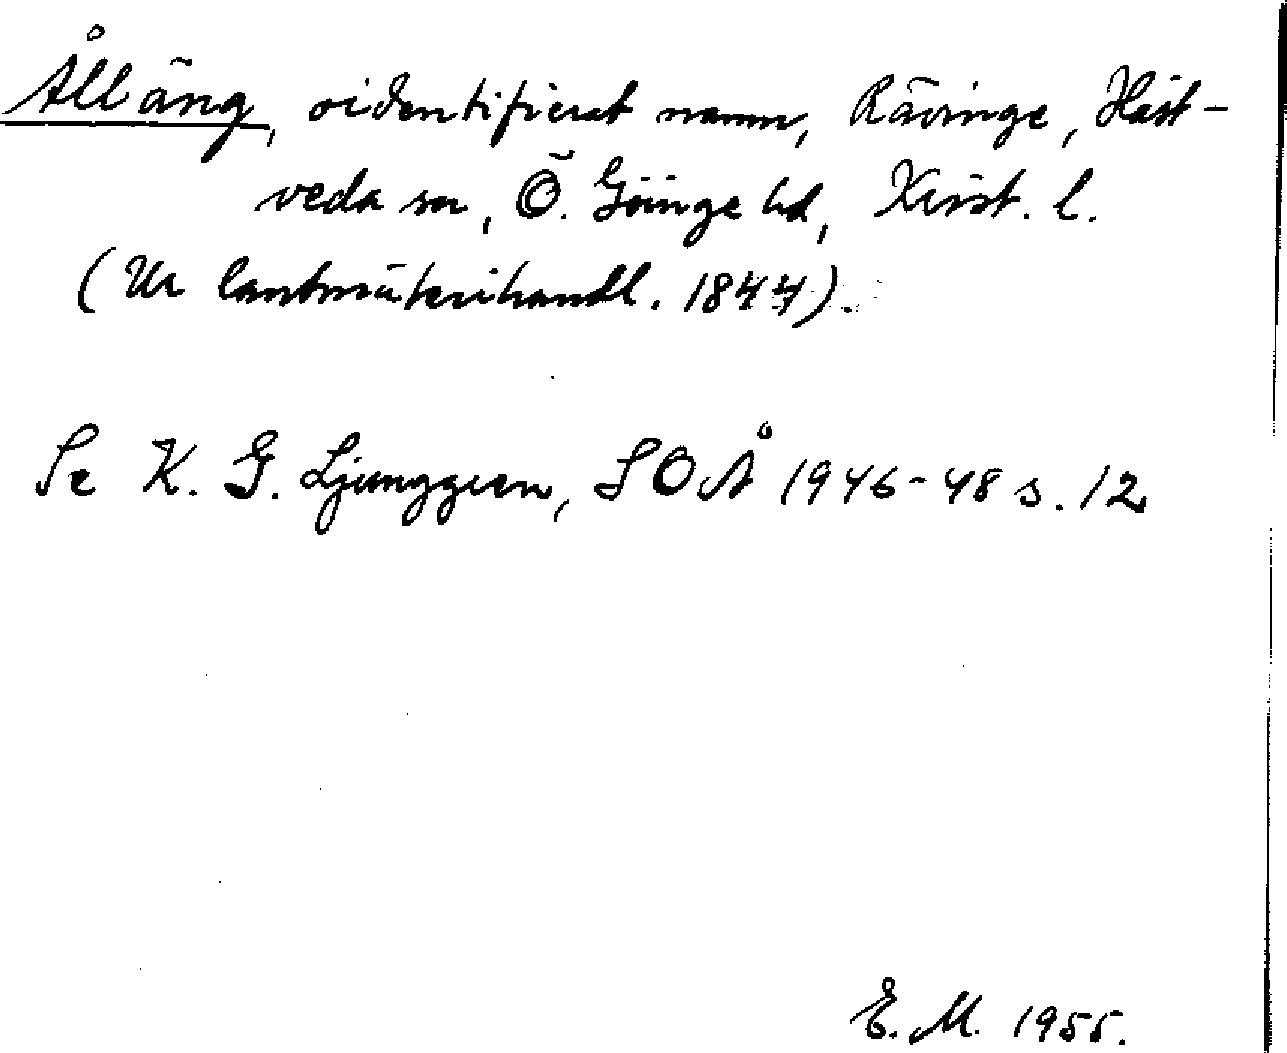 Ålläng, oidentifierat namn, Rävinge, Häst-
veda sn, Ö. Göinge hd, Krist. l.
(Ur lantmäterihandl. 1844).
Se K. G. Ljunggren, SOÅ 1946-48 s. 12
E. M. 1955.